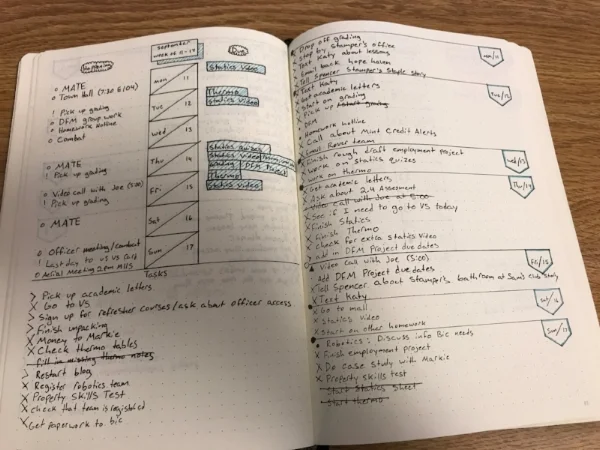 Happening
September
week of 11-17
Due
Mon 11
Statics Video
o MATE
o Town Hall (7:30 G104)
! Pick up grading
o DFM group work
o Homework hotline
o Combat
Tue 12
Thermo
Statics Video
Wed 13
o MATE
! Pick up grading
Thu 14
Statics Quizzes
Statics Video
DFM Project
Thermo
o Video call with Joe (5:00)
! Pick up grading
Fri 15
Statics Video
o MATE
Sat 16
o Officer meeting/combat
! Last day to vs
o Aerial Meeting 2pm
Sun 17
Tasks
> Pick up academic letters
X Go to VS
> Sign up for refresher courses/ask about officer access
> Finish unpacking
X Money to Markie
X Check thermo tables
fill in missing thermo notes
> Restart blog
X Register robotics team
X Property Skills Test
X check that team is registered
X Get paperwork to bic
Drop off grading
Stop by Stamper's office
Text Katy about lessons
Email back hope haven
Tell Spencer Stamper's Staple story
Mon/11
Text Katy
Get academic letters
Start on grading
Pick up start grading
DFM
Tue/12
Homework hotline
X Call about Mint Credit Alerts
Email Rover team
Finish rough draft employment project
Work on Statics Quizes
Work on thermo
Wed/13
Get academic letters
X Ask about 2.4 Assessment
Video Call with Joe at 5:00
X See if I need to go to VS today
X Finish Statics
X Finish Thermo
X Check for extra Statics Video
> add in DFM Project due dates
Thu/14
Video Call with Joe (5:00)
Add DFM Project due dates
X Tell Spencer about Stamper's bathroom at Sam's Club story
X Text Katy
Fri/15
X Go to mall
X Statics Video
X Start on other homework
Sat/16
Robotics: Discuss info Bic needs
X Finish employment project
X Do case study with Markie
X Property skills test
Start Statics Sheet
Start thermo
Sun/17